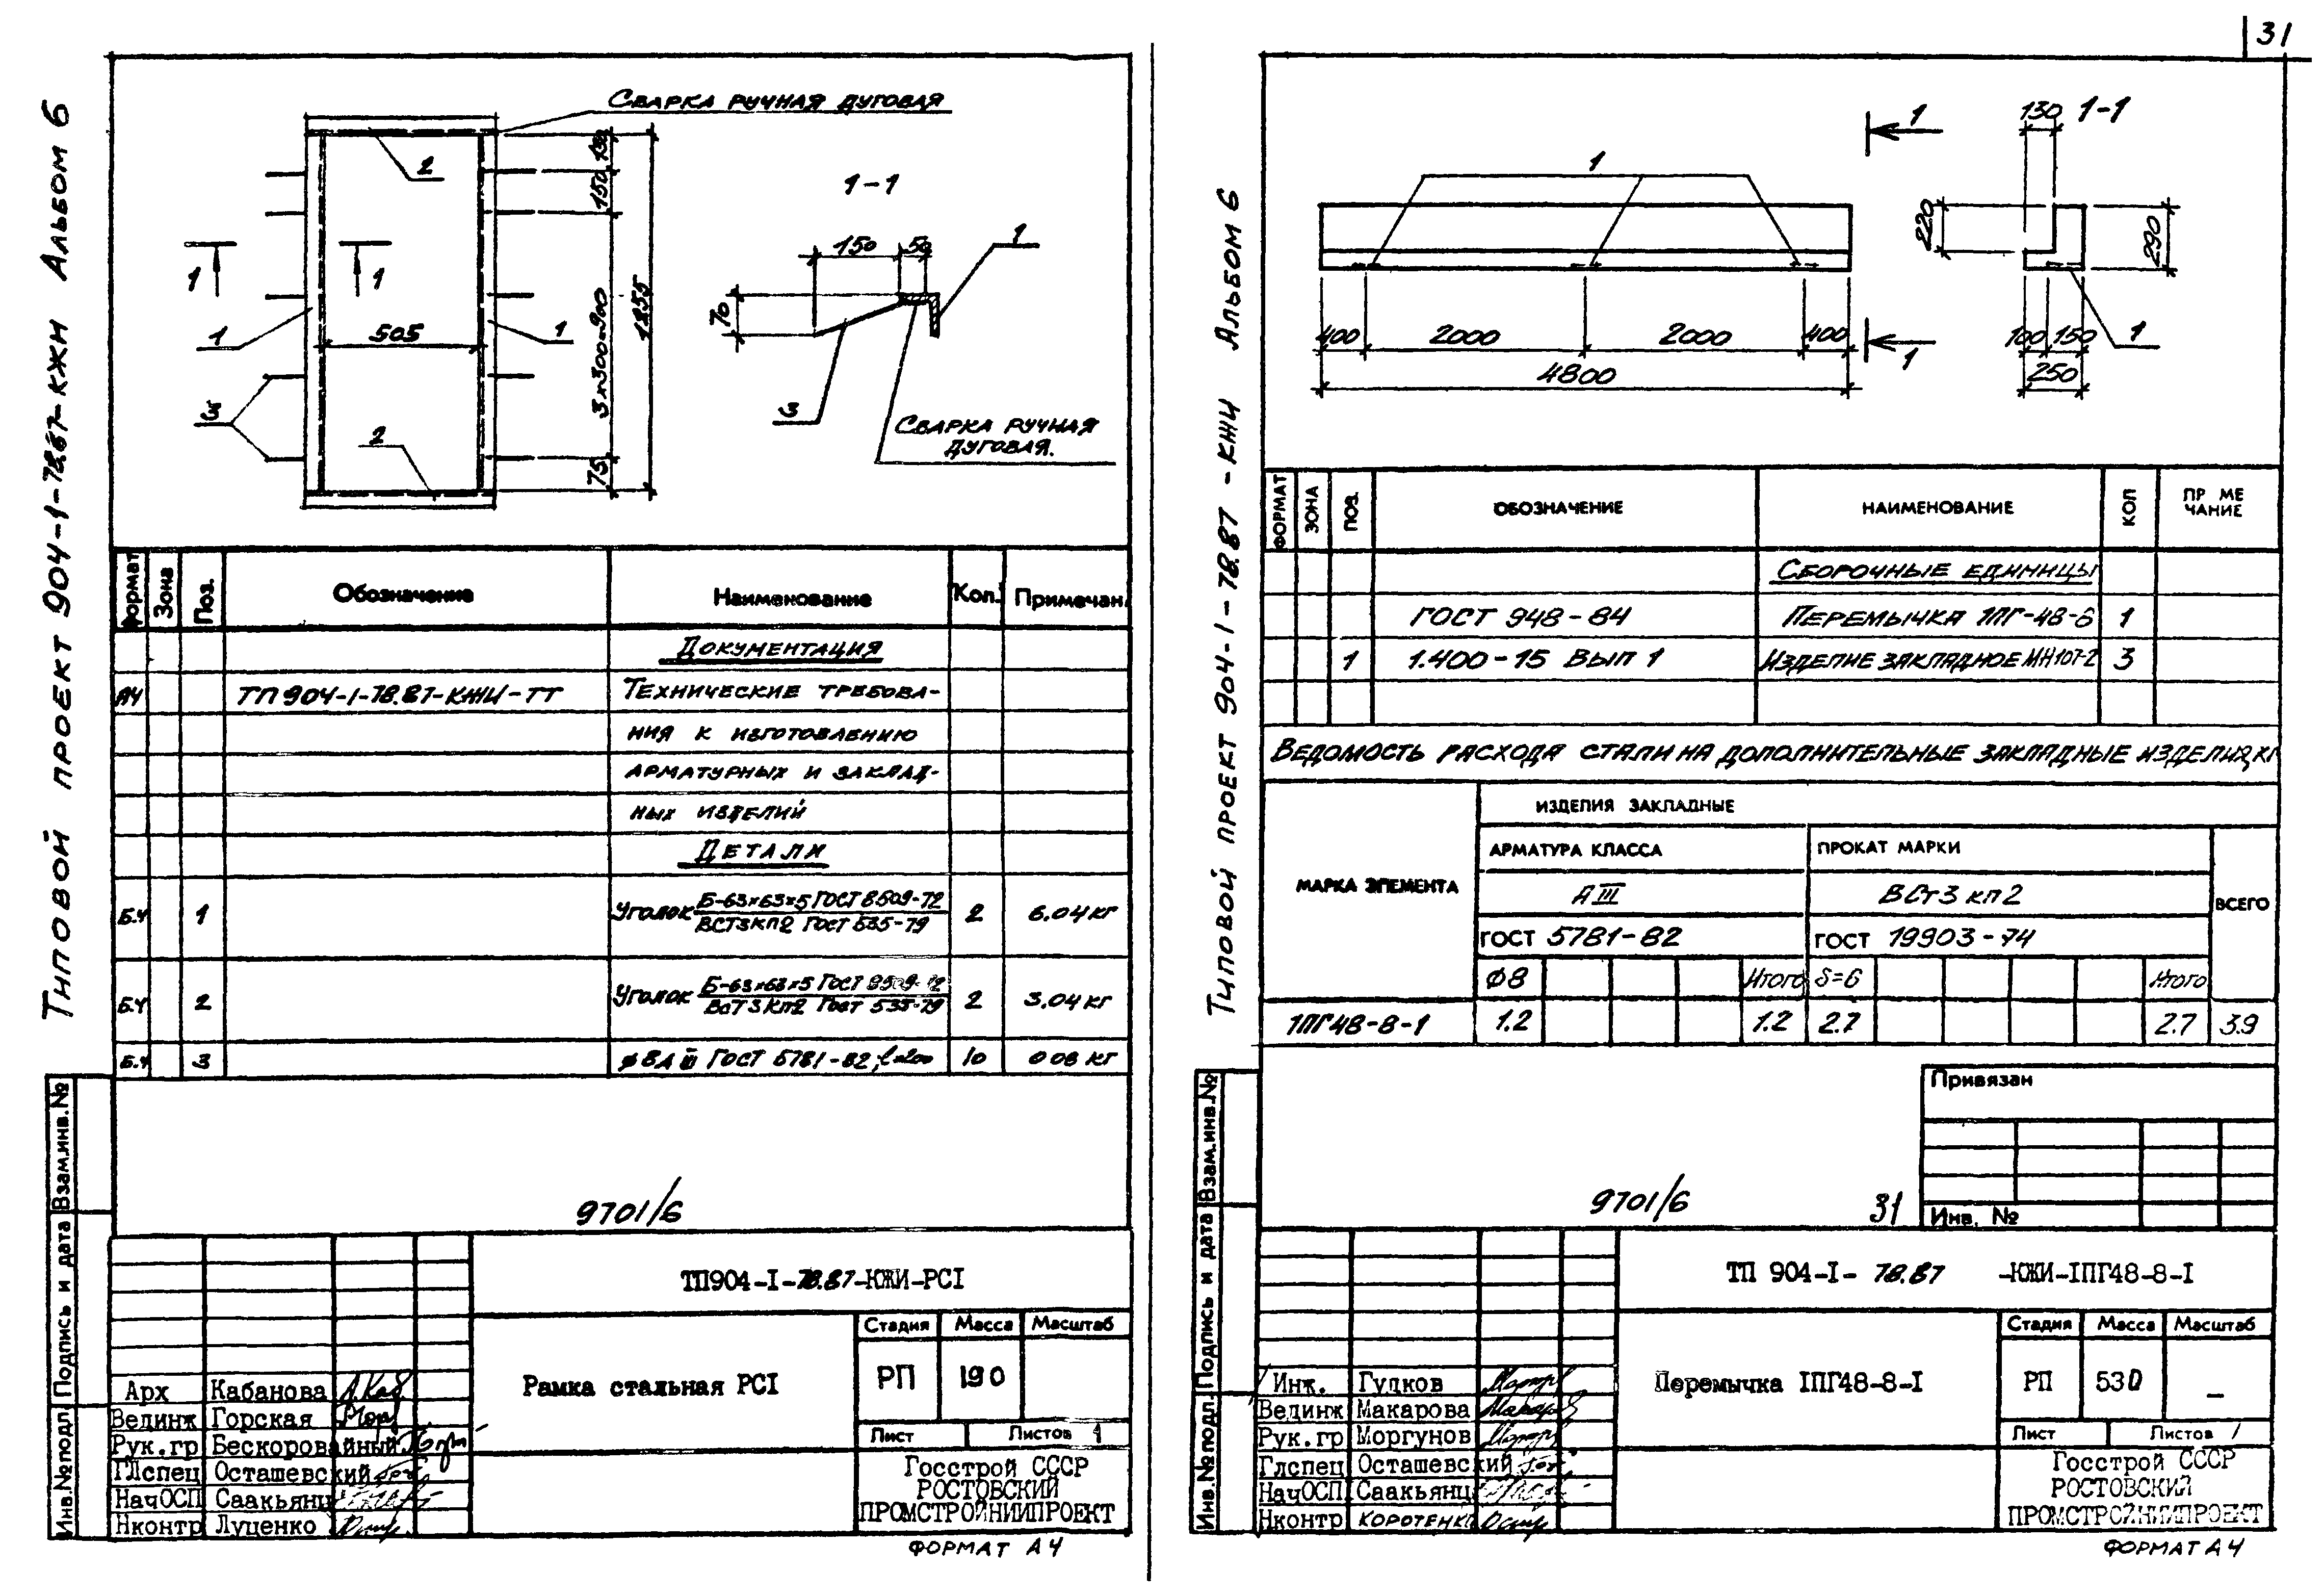 31
Типовой проект 904-1-78.87-КЖИ Альбом 6
Сварка ручная дуговая
2
150
1-1
1
1
150
50
1
70
505
1
1
3п300=900
1255
3
3
2
75
Сварка ручная
дуговая.
Формат
Зона
Поз.
Обозначение
Наименование
Кол.
Примечан.
Документация
А4
ТП904-1-78.87-КЖИ-ТТ
Технические требова-
ния к изготовлению
арматурных и заклад-
ных изделий
Детали
Б.Ч
1
Уголок Б-63×63×5 ГОСТ 8509-72
ВСТ3КП2 ГОСТ 535-79
2
6.04кг
Б.Ч
2
Уголок Б-63×63×5 ГОСТ 8509-72
ВСТ3КП2 ГОСТ 535-79
2
3.04кг
Б.Ч
3
ϕ8АIII ГОСТ 5781-82, ℓ=200
10
0 08 кг
9701/6
Взам.инв.№
Подпись и дата
Инв.№подл.
ТП904-I-78.87-КЖИ-РСI
Рамка стальная РСI
Стадия
Масса
Масштаб
РП
19 0
Лист
Листов 1
Госстрой СССР
РОСТОВСКИЙ
ПРОМСТРОЙНИИПРОЕКТ
Арх Кабанова
Вединж Горская
Рук.гр Бескоровайный
ГЛспец Осташевский
НачОСП Саакьянц
Нконтр Луценко
ФОРМАТ А4
Типовой проект 904-1-78.87-КЖИ Альбом 6
1
1
130
1-1
220
290
400
2000
2000
400
4800
1
100
150
1
250
ФОРМАТ
ЗОНА
ПОЗ.
ОБОЗНАЧЕНИЕ
НАИМЕНОВАНИЕ
КОЛ
ПР МЕ
ЧАНИЕ
Сборочные единицы
ГОСТ 948-84
Перемычка 1ПГ-48-8
1
1
1.400-15 Вып 1
Изделие закладное МН107-2
3
Ведомость расхода стали на дополнительные закладные изделия, кг
МАРКА ЭЛЕМЕНТА
ИЗДЕЛИЯ ЗАКЛАДНЫЕ
АРМАТУРА КЛАССА
ПРОКАТ МАРКИ
ВСЕГО
А III
ВСт3 кп2
ГОСТ 5781-82
ГОСТ 19903-74
ϕ8
Итого
δ=6
Итого
1ПГ48-8-1
1.2
1.2
2.7
2.7
3.9
Привязан
Инв. №
9701/6
31
Взам.инв.№
Подпись и дата
Инв.№подл.
ТП 904-I- 78.87 -КЖИ-IПГ48-8-I
Перемычка IПГ48-8-I
Стадия
Масса
Масштаб
РП
530
–
Лист
Листов 1
Госстрой СССР
РОСТОВСКИЙ
ПРОМСТРОЙНИИПРОЕКТ
Инж. Гудков
Вединж Макарова
Рук.гр Моргунов
Глспец Осташевский
НачОСП Саакьянц
Нконтр Коротенко
ФОРМАТ А4